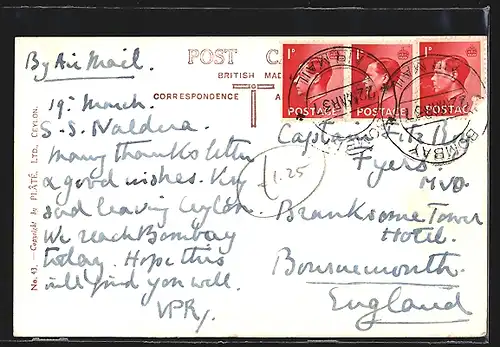 By Air Mail.
POST CA
BRITISH MA
CORRESPONDENCE A
1ᴰ 1ᴰ 1ᴰ
POSTAGE POSTAGE POSTAGE
BOMBAY
19th March.
S-S. Naldera.
Many thanks letter
& good wishes. Very
sad leaving Ceylon.
We reach Bombay
today. Hope this
will find you well.
VPR,
1.25
Captain Fitz Roy
Fyers
MVO.
Branksome Tower
Hotel.
Bournemouth.
England
No. 43. — Copyright by PLÂTÉ, LTD., CEYLON.